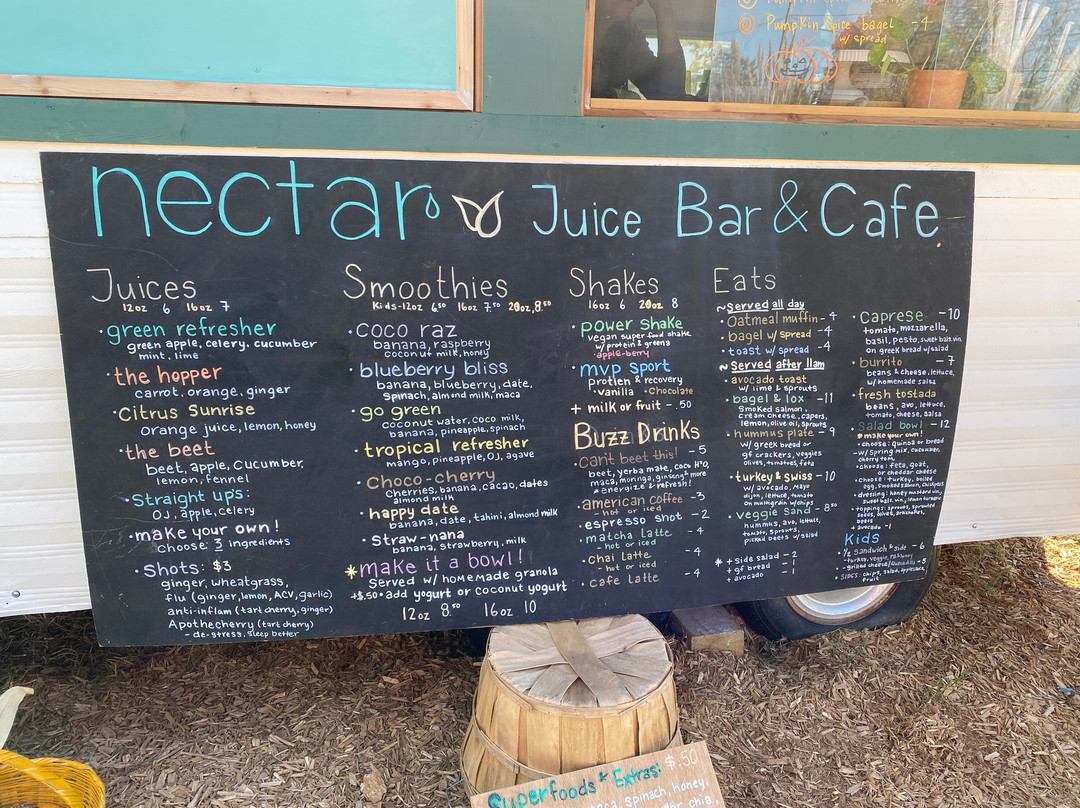 Pumpkin Spice bagel -4
w/ spread
nectar Juice Bar & Cafe
Juices
12oz 6 16oz 7
·green refresher
green apple, celery, cucumber
mint, lime
·the hopper
carrot, orange, ginger
·Citrus Sunrise
orange juice, lemon, honey
·the beet
beet, apple, cucumber,
lemon, fennel
·Straight ups:
OJ, apple, celery
·make your own!
choose 3 ingredients
·Shots: $3
ginger, wheatgrass,
flu (ginger, lemon, ACV, garlic)
anti-inflam (tart cherry, ginger)
Apothecherry (tart cherry)
- de-stress, sleep better
Smoothies
Kids-12oz 6.50 16oz 7.50 20oz, 8.50
·coco raz
banana, raspberry
coconut milk, honey
·blueberry bliss
banana, blueberry, date,
Spinach, almond milk, maca
·go green
coconut water, coco milk,
banana, pineapple, spinach
·tropical refresher
mango, pineapple, OJ, agave
·Choco-cherry
Cherries, banana, cacao, dates
almond milk
·happy date
banana, date, tahini, almond milk
·Straw-nana
banana, strawberry, milk
*make it a bowl!
Served w/ homemade granola
+$.50 · add yogurt or coconut yogurt
12oz 8.50 16oz 10
Shakes
16oz 6 20oz 8
·power shake
vegan super food shake
w/ protein & greens
·apple-berry
·mvp sport
Protien & recovery
·vanilla ·Chocolate
+ milk or fruit - .50
Buzz Drinks
·can't beet this! -5
beet, yerba mate, coco H²O,
maca, moringa, ginseng & more
*energize & refresh!
·american coffee -3
- hot or iced
·espresso shot -2
·matcha latte -4
- hot or iced
·chai latte -4
- hot or iced
·cafe latte -4
Eats
~Served all day
·Oatmeal muffin -4
·bagel w/ spread -4
·toast w/ spread -4
~Served after 11am
·avocado toast
w/ lime & sprouts
·bagel & lox -11
Smoked salmon,
cream cheese, capers,
lemon, olive oil, sprouts
·hummus plate -9
w/ greek bread or
gf crackers, veggies
olives, tomatoes, feta
·turkey & swiss -10
w/ avocado, mayo
dijon, lettuce, tomato
on multigrain w/chips
·veggie sand -8.50
hummus, avo, lettuce,
tomato, sprouts,
pickled beets w/ salad
* + side salad -2
+ gf bread -1
+ avocado -1
·Caprese -10
tomato, mozzarella,
basil, pesto, sweet balz. vin.
on greek bread w/ salad
·burrito -7
beans & cheese, lettuce,
w/ homemade salsa
·fresh tostada
beans, avo, lettuce,
tomato, cheese, salsa
·salad bowl -12
*make your own!
·choose: quinoa or bread
-w/ spring mix, cucumber,
cherry tom.
·choose: feta, goat,
or cheddar cheese
·choose: turkey, boiled
egg, smoked salmon, chickpeas
·dressing: honey mustard vin,
·toppings: sprouts,
seeds, olives, artichokes,
beets
+ avocado -1
Kids
·½ sandwich & side -6
-turkey, veggie,
-grilled cheese -5
·SIDES: chips, salad, applesauce,
fruit
Superfoods * Extras: $.50
spinach, honey,
chia,